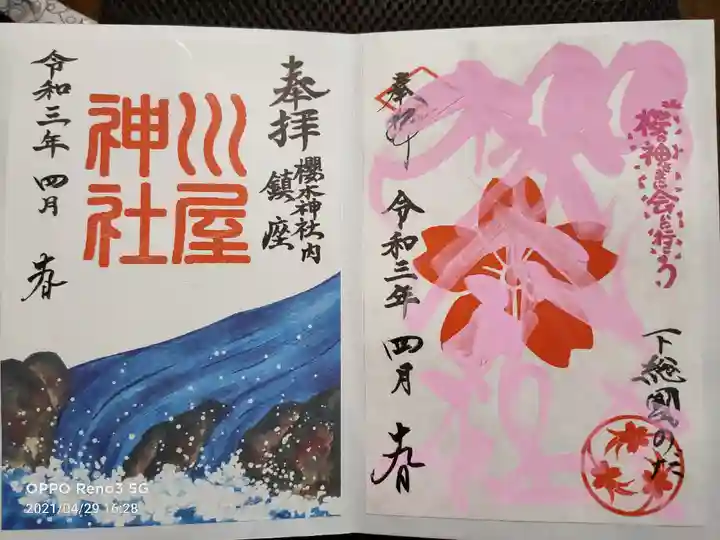 奉拝
櫻木神社内
鎮座
川屋
神社
令和三年 四月 春
桜の神さまに会いに行こう
下総国のだ
奉拝
令和三年 四月 春
OPPO Reno3 5G
2021/04/29 16:28